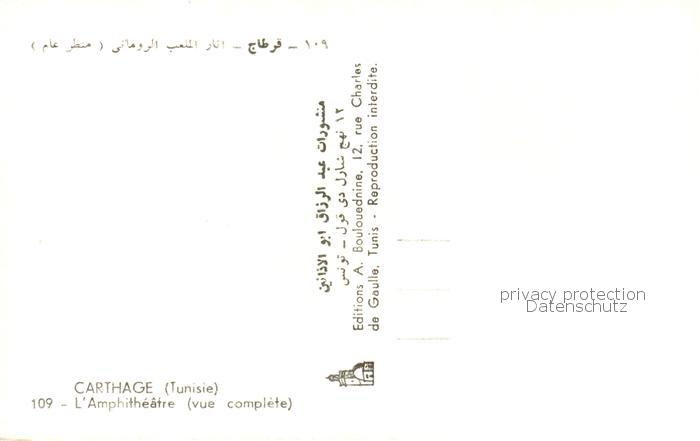 ١٠٩ ــ قرطاج ــ اثار الملعب الرومانى ( منظر عام )
منشورات عبد الرزاق ابو الاذانين
١٢ نهج شارل دى قول ــ تونس
Editions A. Boulouednine, 12, rue Charles
de Gaulle, Tunis - Reproduction interdite.
privacy protection
Datenschutz
CARTHAGE (Tunisie)
109 - L'Amphithéâtre (vue complète)